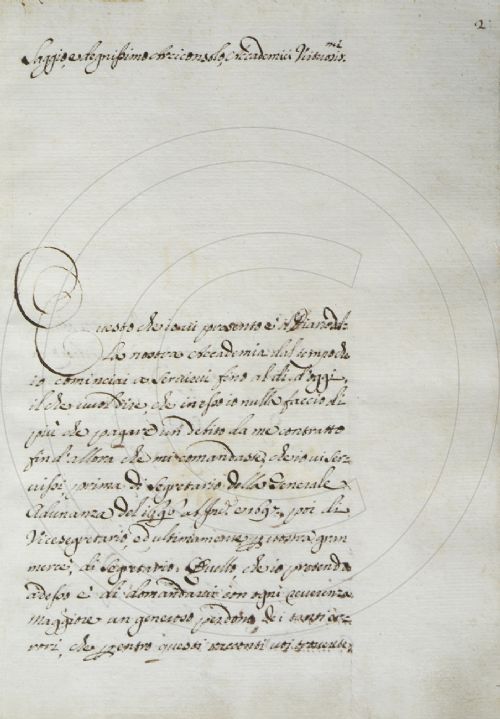 2
Saggio, e degnissimo Arciconsolo, Accademici Virtuosis.mi
Questo che io vi presento è il Diario del-
la nostra Accademia dal tempo che
io cominciai a servirvi fino al dì d'oggi,
il che vuol dire, che in esso io nulla faccio di
più che pagare un debito da me contratto
fin d'allora che mi comandaste, che io vi ser-
vissi prima di Segretario della Generale
Adunanza del poi di
Vicesegretario, ed ultimamente per vostra gran
mercè, di Segretario. Quello che io pretendo
adesso è di domandarvi con ogni reverenza
maggiore un generoso perdono, dei tanti er-
rori, che pentro questi racconti voi troverete,